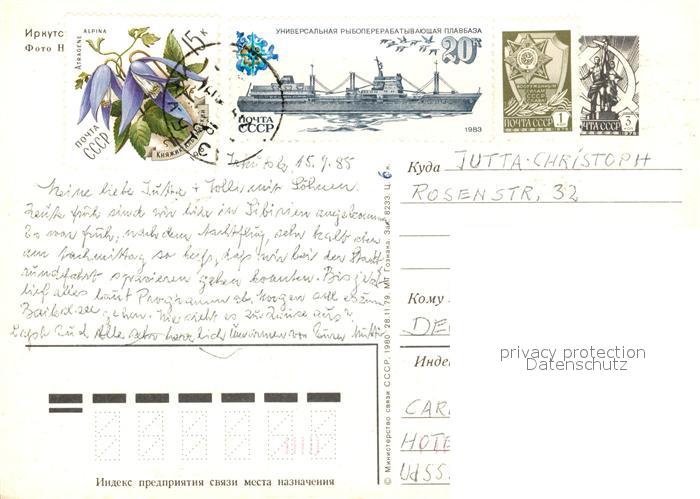 Иркутс
Фото Н
ATRAGENE ALPINA
15к
ПОЧТА СССР
Княжик альпийский
УНИВЕРСАЛЬНАЯ РЫБОПЕРЕРАБАТЫВАЮЩАЯ ПЛАВБАЗА
20к
ПОЧТА СССР
1983
ВООРУЖЕННЫМ СИЛАМ СССР
ПОЧТА СССР 1к
1976
ПОЧТА СССР 3к
1976
Irkutsk, 15.9.85
Meine liebe Jutta + Volli mit Söhnen.
Heute früh sind wir hier in Sibirien angekommen
Es war früh, nach dem Nachtflug, sehr kalt aber
am Nachmittag so heiß, daß wir bei der Stadt
rundfahrt spazieren gehen konnten. Bis jetzt
lief alles laut Programm ab. Morgen soll es zum
Baikalsee gehen. Wie sieht es zu Hause aus?
Laßt Euch Alle sehr herzlich umarmen von Eurer Mutti
Куда JUTTA-CHRISTOPH
ROSENSTR, 32
Кому
DE
Инде
CAR
HOTE
UdSS
privacy protection
Datenschutz
© Министерство связи СССР, 1980. 28.11.79. МП Гознака. Зак. 8233. Ц. 6 к.
Индекс предприятия связи места назначения